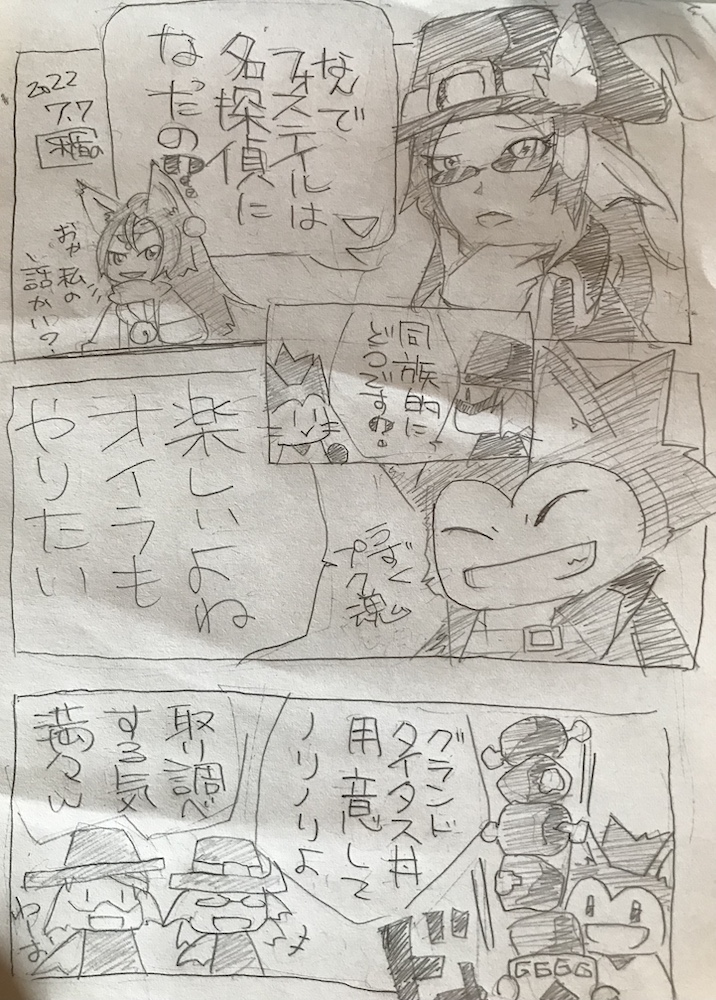 なんで
フォステイルは
名探偵に
なったの!?
2022
7.7
おや私の
話かい?
同族的に
どうです!?
楽しいよね
オイラも
やりたい
うずく
プク魂
グランド
タイタス丼
用意して
ノリノリよ
取り調べ
する気
満々ww
わーお
ドン
GGGG